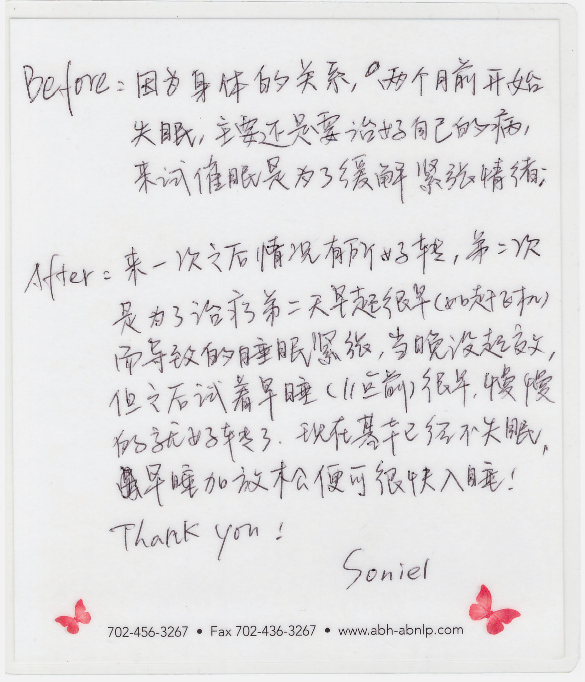 Before: 因为身体的关系,两个月前开始
失眠,主要还是要治好自己的病,
来试催眠是为了缓解紧张情绪;
After: 来一次之后情况有所好转,第二次
是为了治疗第二天早起很早(如赶飞机)
而导致的睡眠紧张,当晚没起效,
但之后试着早睡(11点前)很早,慢慢
的就好转了.现在基本已经不失眠,
早睡加放松便可很快入睡!
Thank you!
Soniel
702-456-3267 • Fax 702-436-3267 • www.abh-abnlp.com